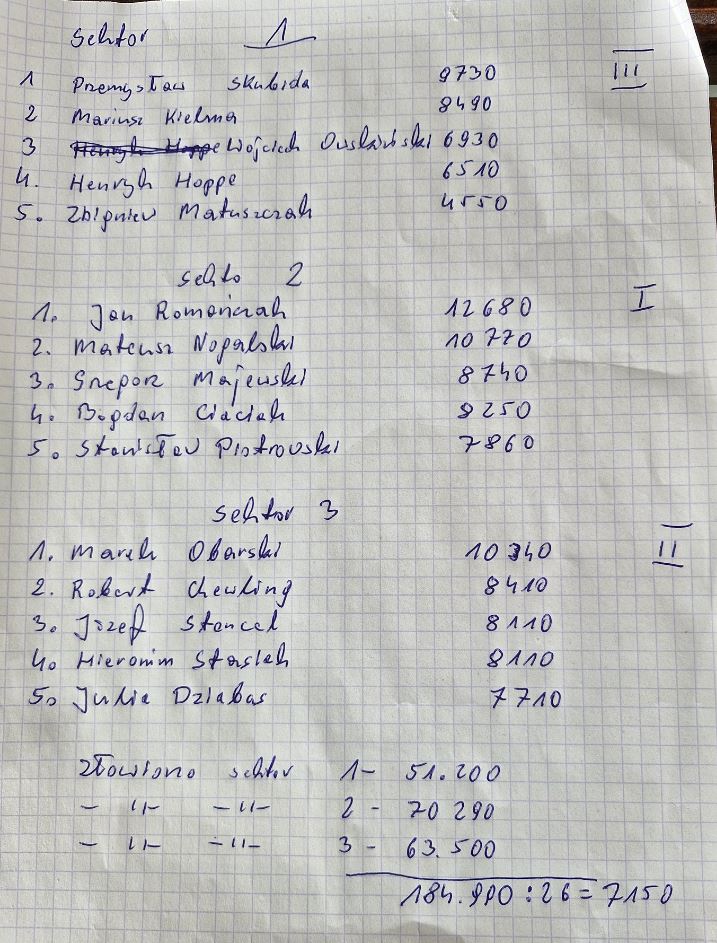 Sektor 1
1 Przemysław Skubida 9730 III
2 Mariusz Kielma 8490
3 Henryk Hoppe Wojciech 6930
4. Henryk Hoppe 6510
5. Zbigniew Matuszczak 4550
sekto 2
1. Jan Romańczak 12680 I
2. Mateusz Nogalski 10770
3. Grzegorz Majewski 8740
4. Bogdan Ciaciak 8250
5. Stanisław Piotrowski 7860
sektor 3
1. Marek Obarski 10340 II
2. Robert 8410
3. Józef Stancel 8110
4. Hieronim Stasiek 8110
5. Julia Dziabas 7710
złowiono sektor 1- 51.200
- 11- -11- 2- 70 290
- 11- -11- 3- 63.500
184.990 : 26 = 7150